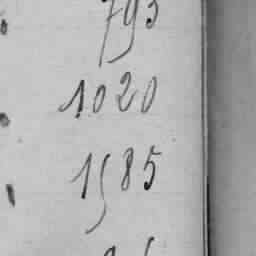 793
1020
1585